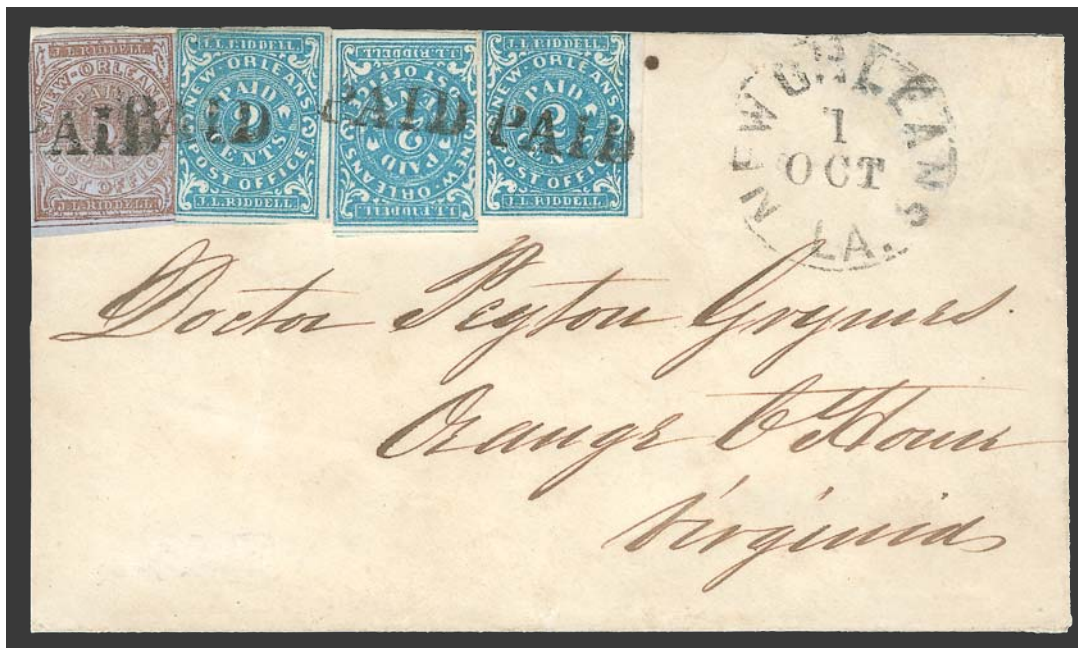 J.L.RIDDELL
NEW-ORLEANS
PAID
POST OFFICE
J.L.RIDDELL
J.L.RIDDELL
NEW ORLEANS
PAID
2
CENTS
POST OFFICE
J.L.RIDDELL
J.L.RIDDELL
NEW ORLEANS
PAID
2
CENTS
POST OFFICE
J.L.RIDDELL
J.L.RIDDELL
NEW ORLEANS
PAID
2
CENTS
POST OFFICE
J.L.RIDDELL
PAID
PAID
PAID
PAID
NEW ORLEANS
1
OCT
LA.
Doctor Peyton Grymes.
Orange C House
Virginia